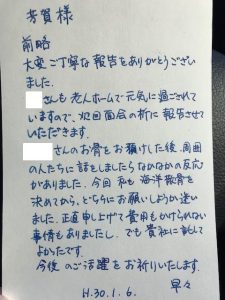 芳賀様
前略
大変ご丁寧な報告をありがとうござい
ました.
さんも老人ホームで元気に過ごされて
いますので、次回面会の折に報告させて
いただきます.
さんのお骨をお預けした後、周囲
の人たちに話をしましたらなかなかの反応
がありました. 今回 私も海洋散骨を
決めてから、どちらにお願いしようか迷い
ました. 正直申し上げて費用もかけられない
事情もありましたし、でも貴社に託して
よかったです.
今後 のご活躍をお祈りいたします.
早々
H.30.1.6.